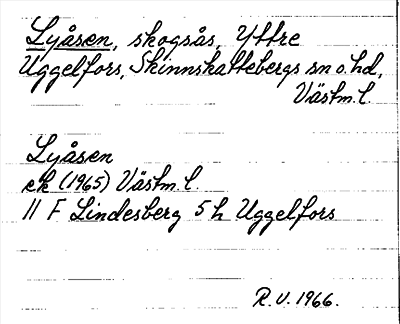 Lyåsen, skogsås, Yttre
Uggelfors, Skinnskattebergs sn o. hd,
Västm. l.
Lyåsen
ek (1965) Västm. l.
11 F Lindesberg 5 h Uggelfors
R.V. 1966.